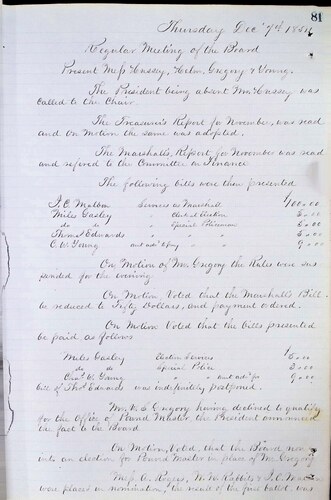 81
Thursday Dec 7th
Regular Meeting of the Board
Present Mess Hussey, Helm, Gregory & Young.
The President being absent Mr Hussey was
called to the Chair.
The Treasurer's Report for November, was read
and on Motion the same was adopted.
The Marshall's Report for November was read
and refered to the Committee on Finance
The following bills were then presented
J. C. Services as Marshall $100.00
Miles Gasley " Clerk of Election 5.00
do do " Special Policeman 5.00
Thomas Edwards " " " 5.00
C. W. Young " " " 9.00
On Motion of Mr Gregory the Rules were sus
pended for the evening
On Motion Voted that the Marshall's Bill
be reduced to Fifty Dollars, and payment ordered.
On Motion Voted that the bills presented
be paid as follows
Miles Gasley Election Services $5.00
do do Special Police 5.00
W. Young " " 9.00
bill of Thos Edwards was indefinitely postponed.
Mr Gregory having declined to qualify
for the Office of Pound Master, the President announced
the fact to the Board
On Motion, Voted, that the Board now
into an election for Pound Master in place of Mr Gregory
Mess A. Rogers, & J. C.
were placed in nomination, the result of the first ballot, was